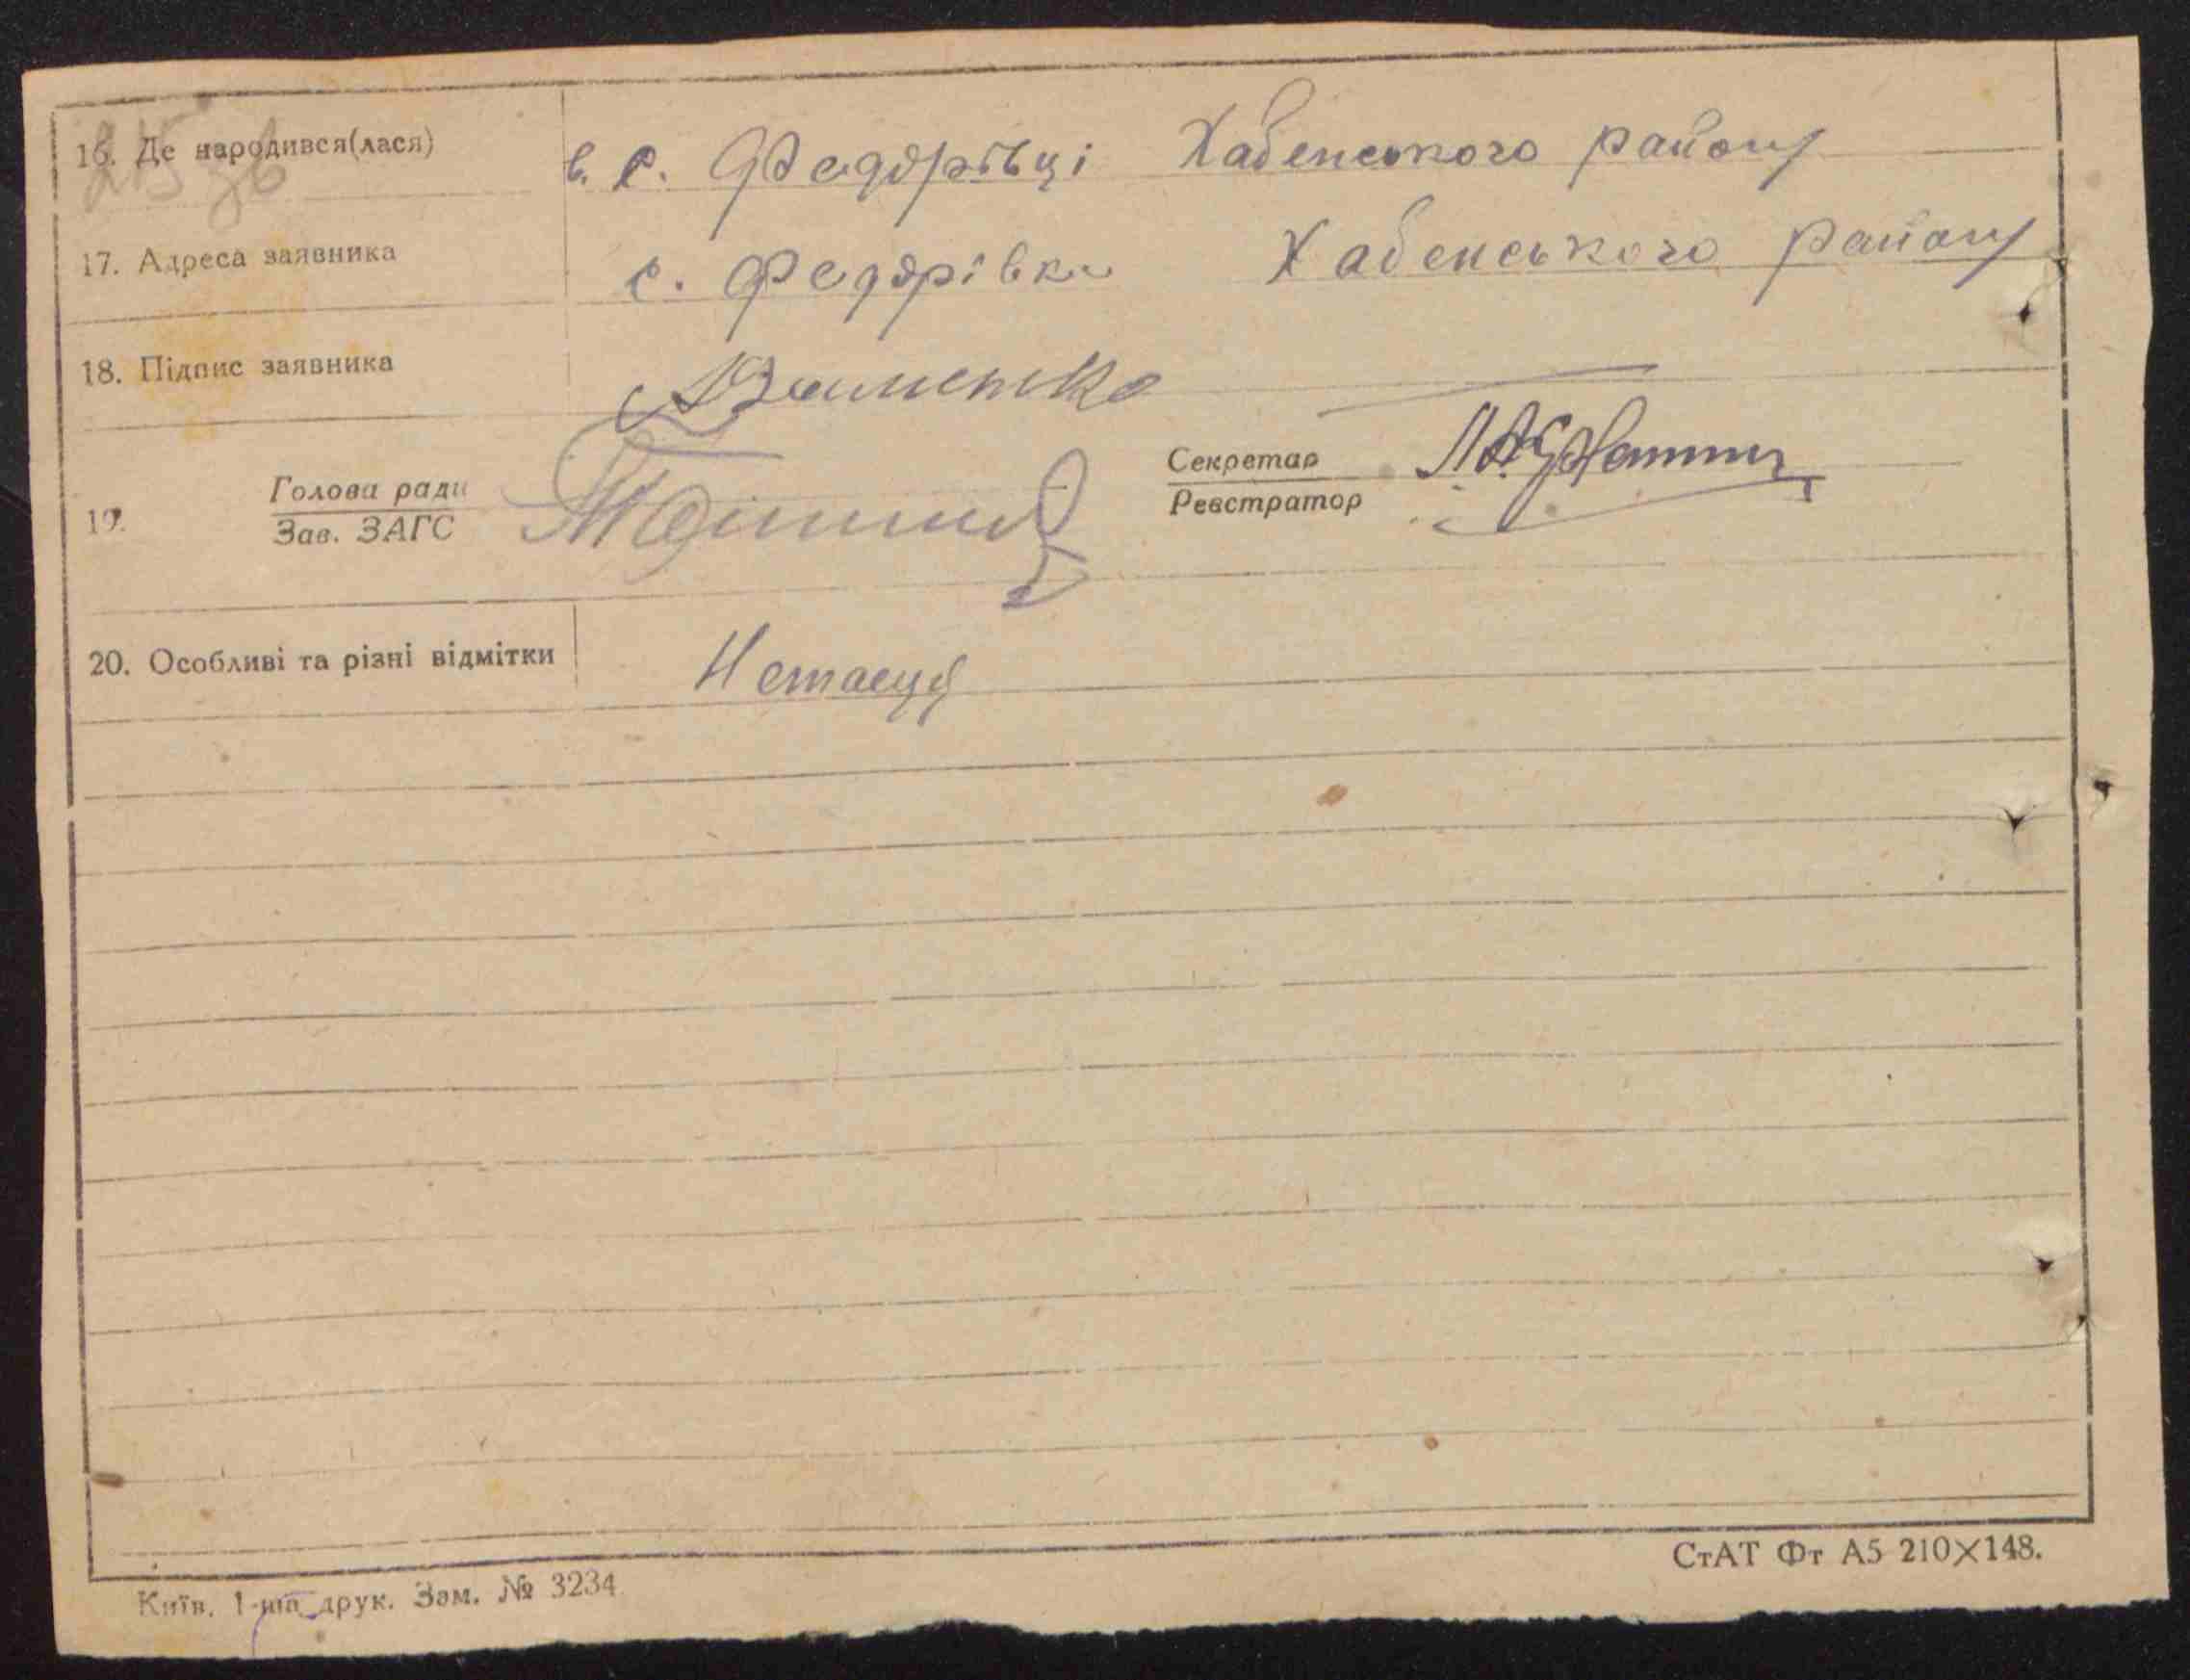 16. Де народився(лася) в. с. Федорівці Хабенського району
17. Адреса заявника с. Федорівка Хабенського району
18. Підпис заявника
19. Голова ради Секретар
Зав. ЗАГС Реєстратор
20. Особливі та різні відмітки
Київ. 1-ша друк. Зам. № 3234
СтАТ Фт А5 210×148.